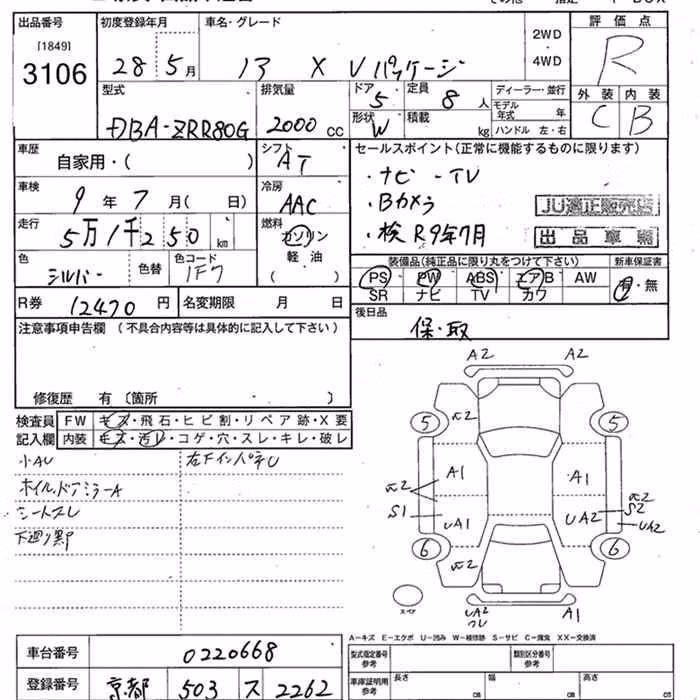 出品番号 初度登録年月 車名・グレード 2WD・4WD 評価点
[1849]
3106 28年5月 X Vパッケージ R
型式 排気量 ドア 5 定員 8人 ディーラー・並行 外装 内装
DBA-ZRR80G 2000cc 形状 W 積載 kg モデル年式 年 C B
ハンドル 左・右
車歴 シフト セールスポイント(正常に機能するものに限ります)
自家用・( ) AT ・ナビ-TV
車検 冷房 ・Bカメラ JU適正販売店
9年7月( 日) AAC ・検R9年7月 出品車輌
走行 燃料
5万1千250km ガソリン
軽油
( )
色 色替 色コード 装備品(純正品に限り丸をつけて下さい) 新車保証書
シルバー 1F7 PS PW ABS エアB AW 有・無
SR ナビ TV カワ
R券 12470円 名変期限 月 日 後日品
保・取
注意事項申告欄 (不具合内容等は具体的に記入して下さい)
修復歴 有〔箇所 〕
検査員 FW キズ・飛石・ヒビ割・リペア跡・X要
記入欄 内装 キズ・汚レ・コゲ・穴・スレ・キレ・破レ
小AU
ホイル,ドアミラーA
シートスレ
A2 A2
5 5
A1 A1
S1 UA1 UA2 S2
UA2
6 6
UA2 A1
A-キズ E-エクボ U-凹み W-補修跡 S-サビ C-腐食 XX-交換済
車台番号 0220668 型式指定番号 参考 類別区分番号 参考
登録番号 京都 503 ス 2262 車庫証明用 参考 長さ cm 幅 cm 高さ cm